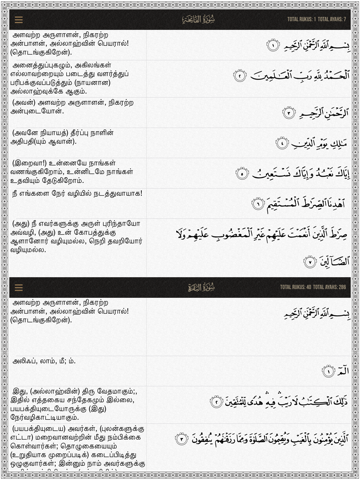 سُورَةُ الفَاتِحَةِ
TOTAL RUKUS: 1 TOTAL AYAHS: 7
அளவற்ற அருளாளன், நிகரற்ற
அன்பாளன், அல்லாஹ்வின் பெயரால்!
(தொடங்குகிறேன்).
بِسْمِ اللَّهِ الرَّحْمَٰنِ الرَّحِيمِ ١
அனைத்துப்புகழும், அகிலங்கள்
எல்லாவற்றையும் படைத்து வளர்த்துப்
பரிபக்குவப்படுத்தும் (நாயனான)
அல்லாஹ்வுக்கே ஆகும்.
الْحَمْدُ لِلَّهِ رَبِّ الْعَالَمِينَ ٢
(அவன்) அளவற்ற அருளாளன், நிகரற்ற
அன்புடையோன்.
الرَّحْمَٰنِ الرَّحِيمِ ٣
(அவனே நியாயத்) தீர்ப்பு நாளின்
அதிபதி(யும் ஆவான்).
مَالِكِ يَوْمِ الدِّينِ ٤
(இறைவா!) உன்னையே நாங்கள்
வணங்குகிறோம், உன்னிடமே நாங்கள்
உதவியும் தேடுகிறோம்.
إِيَّاكَ نَعْبُدُ وَإِيَّاكَ نَسْتَعِينُ ٥
நீ எங்களை நேர் வழியில் நடத்துவாயாக!
اهْدِنَا الصِّرَاطَ الْمُسْتَقِيمَ ٦
(அது) நீ எவர்களுக்கு அருள் புரிந்தாயோ
அவ்வழி, (அது) உன் கோபத்துக்கு
ஆளானோர் வழியுமல்ல, நெறி தவறியோர்
வழியுமல்ல.
صِرَاطَ الَّذِينَ أَنْعَمْتَ عَلَيْهِمْ غَيْرِ الْمَغْضُوبِ عَلَيْهِمْ وَلَا
الضَّالِّينَ ٧
سُورَةُ البَقَرَةِ
TOTAL RUKUS: 40 TOTAL AYAHS: 286
அளவற்ற அருளாளன், நிகரற்ற
அன்பாளன், அல்லாஹ்வின் பெயரால்!
(தொடங்குகிறேன்).
بِسْمِ اللَّهِ الرَّحْمَٰنِ الرَّحِيمِ
அலிஃப், லாம், மீ; ம்.
الٓمٓ ١
இது, (அல்லாஹ்வின்) திரு வேதமாகும்;,
இதில் எத்தகைய சந்தேகமும் இல்லை,
பயபக்தியுடையோருக்கு (இது)
நேர்வழிகாட்டியாகும்.
ذَٰلِكَ الْكِتَابُ لَا رَيْبَ فِيهِ هُدًى لِلْمُتَّقِينَ ٢
(பயபக்தியுடைய) அவர்கள், (புலன்களுக்கு
எட்டா) மறைவானவற்றின் மீது நம்பிக்கை
கொள்வார்கள்; தொழுகையையும்
(உறுதியாக முறைப்படிக்) கடைப்பிடித்து
ஒழுகுவார்கள்; இன்னும் நாம் அவர்களுக்கு
الَّذِينَ يُؤْمِنُونَ بِالْغَيْبِ وَيُقِيمُونَ الصَّلَاةَ وَمِمَّا رَزَقْنَاهُمْ يُنْفِقُونَ ٣